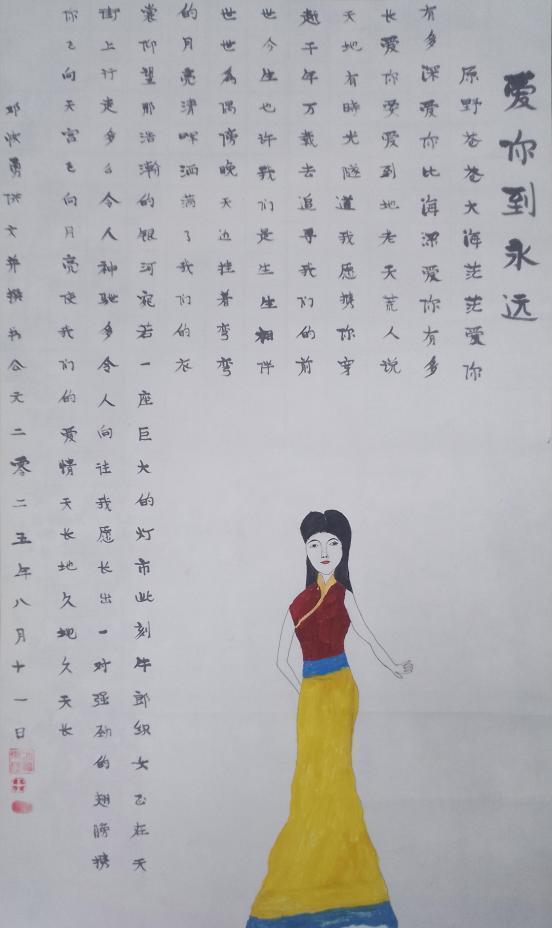 爱你到永远
原野苍苍大海茫茫爱你
有多深爱你比海深爱你有多
长爱你要爱到地老天荒人说
天地有時光隧道我愿携你穿
越千年万载去追寻我们的前
世今生也许我们是生生相伴
世世為偶傍晚天边挂着弯弯
的月亮清晖洒满了我们的衣
裳仰望那浩瀚的银河宛若一座巨大的灯市此刻牛郎织女正在天
街上行走多么令人神驰多令人向往我愿长出一对强劲的翅膀携
你飞向天宫飞向月亮使我们的爱情天长地久地久天长
邓勇供文并撰书公元二零二五年八月十一日